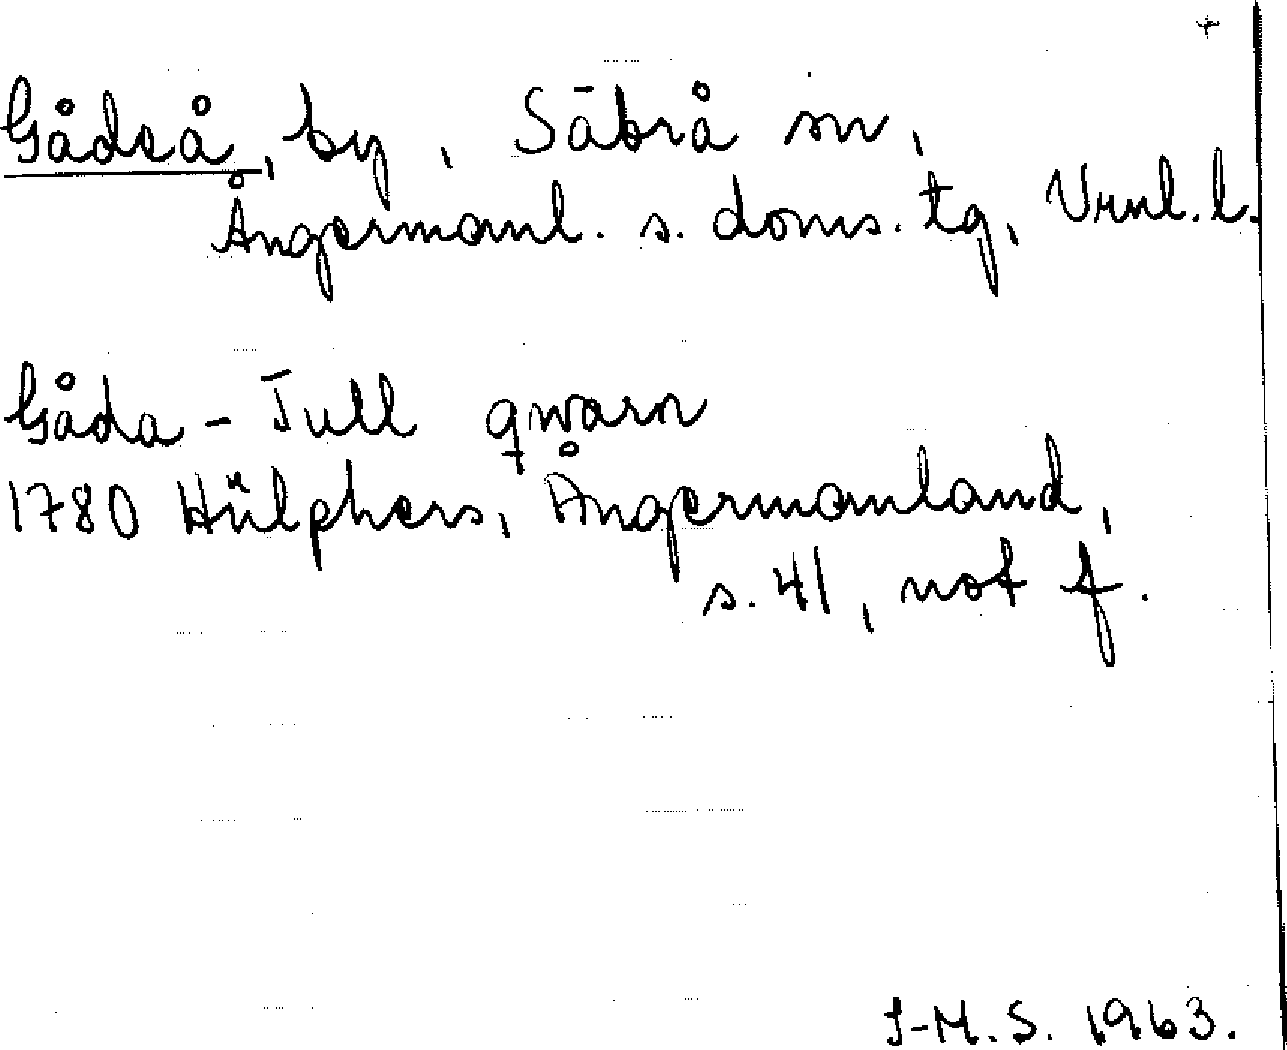 +
Gådeå, by, Säbrå sn,
Ångermanl. s. doms. tg, Vrnl. l.
Gåda-Tull qwarn
1780 Hülphers, Ångermanland,
s. 41, not f.
I-M.S. 1963.